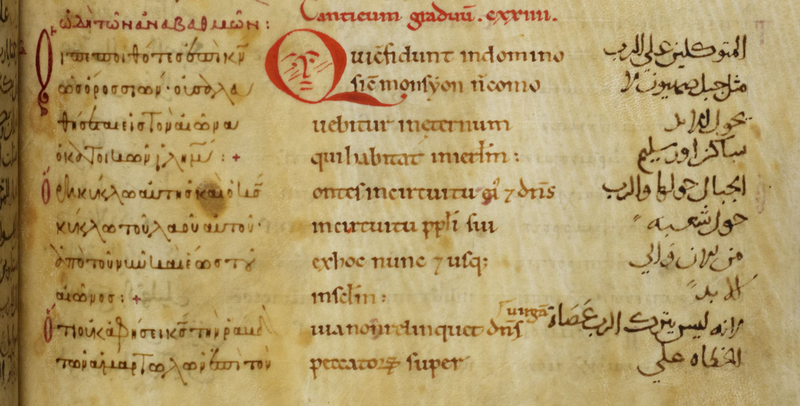 ὠδι τῶν ἀναβαθμῶν:
Οἱ πεποιθότες ἐπὶ κν
ὡς ὄρος σιών· οὐ σαλε
θήσεται εἰς τὸν αἰῶνα
ὁ κατοικῶν ιλημ: +
Ὄρη κύκλω αὐτῆς καὶ ὁ κς
κύκλω τοῦ λαοῦ αὐτοῦ·
ἀπὸ τοῦ νῦν καὶ ἕως τοῦ
αἰῶνος: +
Ὅτι οὐκ ἀφήσει κς τὴν ράβδ
τῶν ἁμαρτωλῶν ἐπὶ τὸν
Canticum graduũ. cxxiiii.
Qui cõfidunt in domino
sic̃ mons syon ñ como
uebitur in eternum
qui habitat in ierl̃m:
ontes in circuitu ei ⁊ dñs
in circuitu ppl̃i sui
ex hoc nunc ⁊ usq;
in sc̃lm:
uia non relinquet dñs uirgã
peccatorꝝ super
المتوكلين علي الرب
مثل جبل صهيون لا
يحول ابد
ساكن اورشليم
الجبال حولها والرب
حول شعبه
من الان والي
الابد
انه ليس يترك الرب عصاة
الخطاه علي